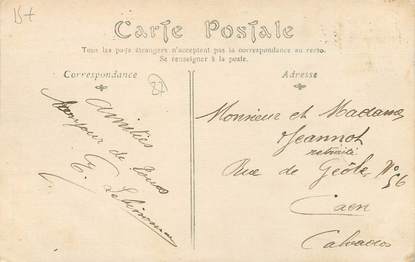 15+
Carte Postale
Tous les pays étrangers n'acceptent pas la correspondance au recto.
Se renseigner à la poste.
Correspondance
Adresse
Amitiés
bonjour de tous
Monsieur et Madame
Jeannot
retraité
Rue de Geôle, No
56
Caen
Calvados